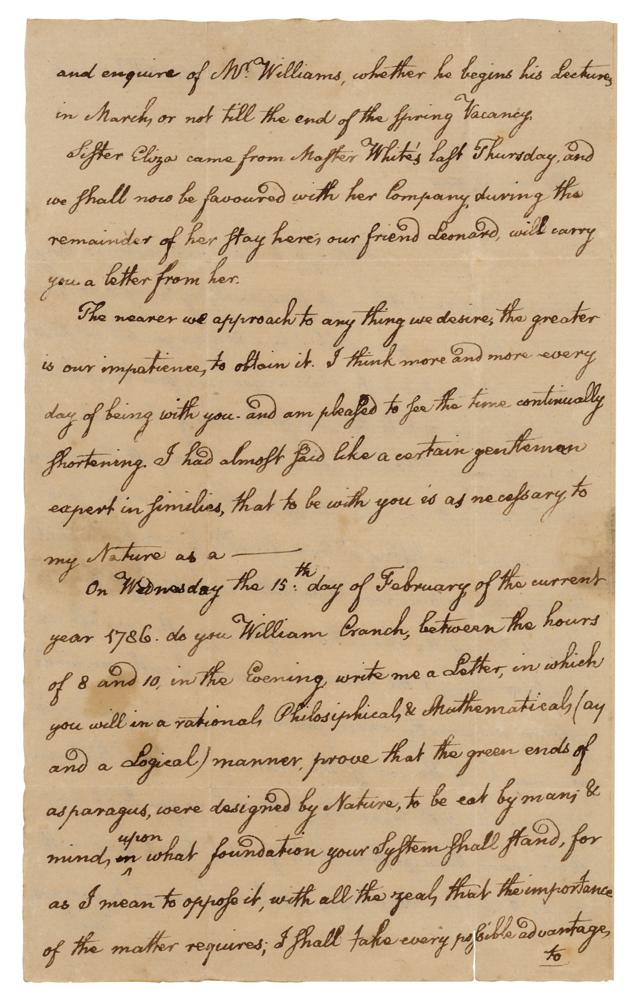 and enquire of Mr. Williams, whether he begins his Lectures,
in March, or not till the end of the Spring Vacancy.
Sister Eliza came from Master White's last Thursday, and
we shall now be favoured with her Company, during the
remainder of her stay here; our friend Leonard, will carry
you a letter from her.
The nearer we approach to any thing we desire, the greater
is our impatience, to obtain it. I think more and more every
day of being with you. and am pleased to see the time continually
shortening. I had almost said like a certain gentleman
expert in similies, that to be with you is as necessary to
my Nature as a ———
On Wednesday the 15:th day of February of the current
year 1786. do you William Cranch, between the hours
of 8 and 10, in the Evening, write me a Letter, in which
you will in a rational, Philosiphical, & Mathematical, (ay
and a Logical) manner, prove that the green ends of
asparagus, were designed by Nature, to be eat by man; &
mind, in upon what foundation your System shall stand, for
as I mean to oppose it, with all the zeal, that the importance
of the matter requires; I shall take every possible advantage,
to